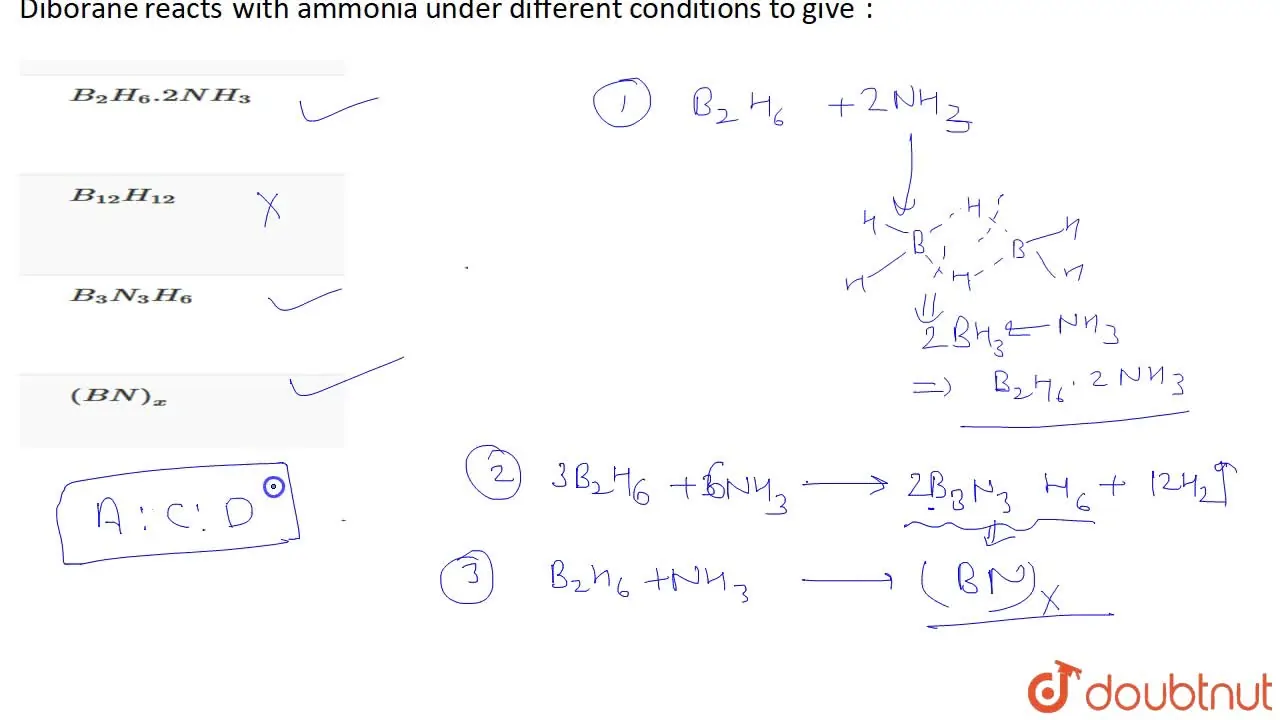 Diborane reacts with ammonia under different conditions to give :
B₂H₆.2NH₃
B₁₂H₁₂ X
B₃N₃H₆
(BN)ₓ
A : C : D
① B₂H₆ + 2NH₃
H H H
B B
H H H
2BH₃ ← NH₃
⇒ B₂H₆ . 2NH₃
② 3B₂H₆ + 6NH₃ → 2B₃N₃H₆ + 12H₂↑
③ B₂H₆ + NH₃ → (BN)ₓ
doubtnut